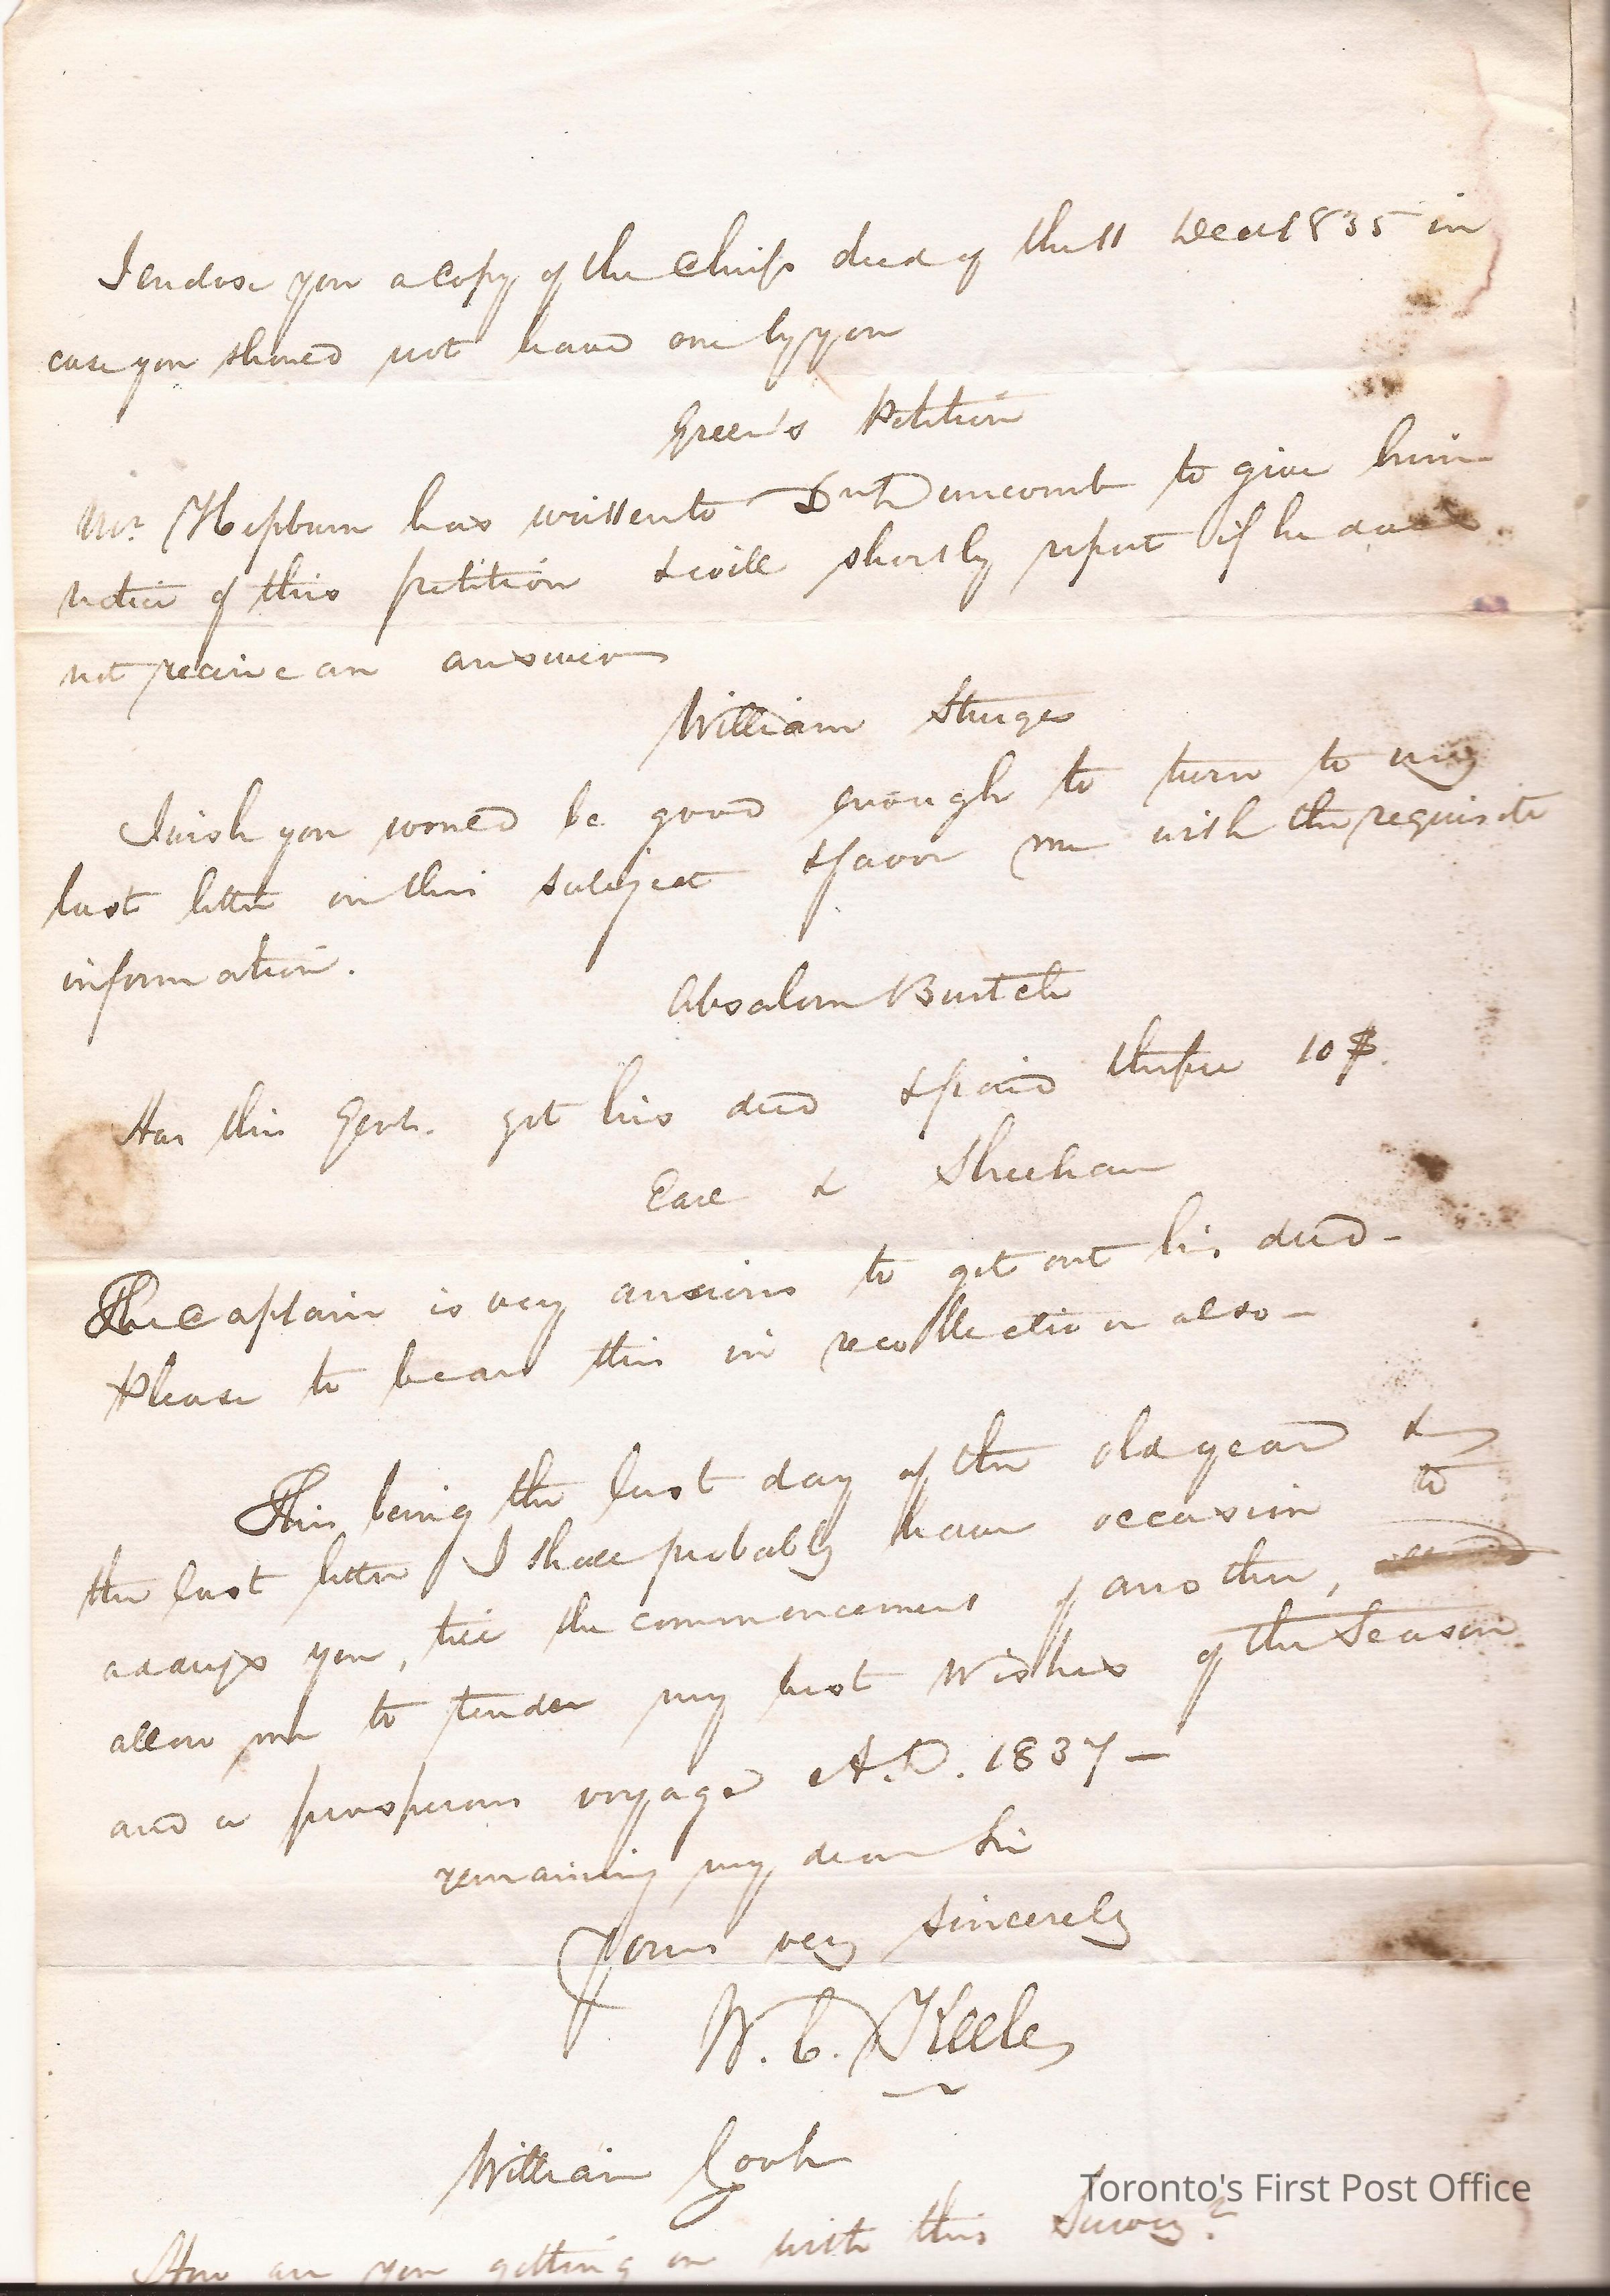 I enclose you a copy of the Chiefs deed of the 11 Decr 1835 in
case you should not have one by you
Green's Petition
Mr. Hepburn has written to Dr Duncomb to give him
notice of this petition & will shortly report if he does
not receive an answer
William Sturges
I wish you would be good enough to turn to my
last letter on this subject & favor me with the requisite
information.
Absalom Burtch
Has this Gent. got his deed & paid the fee 10$.
Earl & Sheehan
The Captain is very anxious to get out his deed -
Please to bear this in recollection also -
This being the last day of the old year &
the last letter I shall probably have occasion to
address you, till the commencement of another,
allow me to tender my best Wishes of the Season
and a prosperous voyage A.D. 1837 -
remaining my dear Sir
Yours very sincerely
W. C. Keele
William Cook
How are you getting on with this Survey?
Toronto's First Post Office